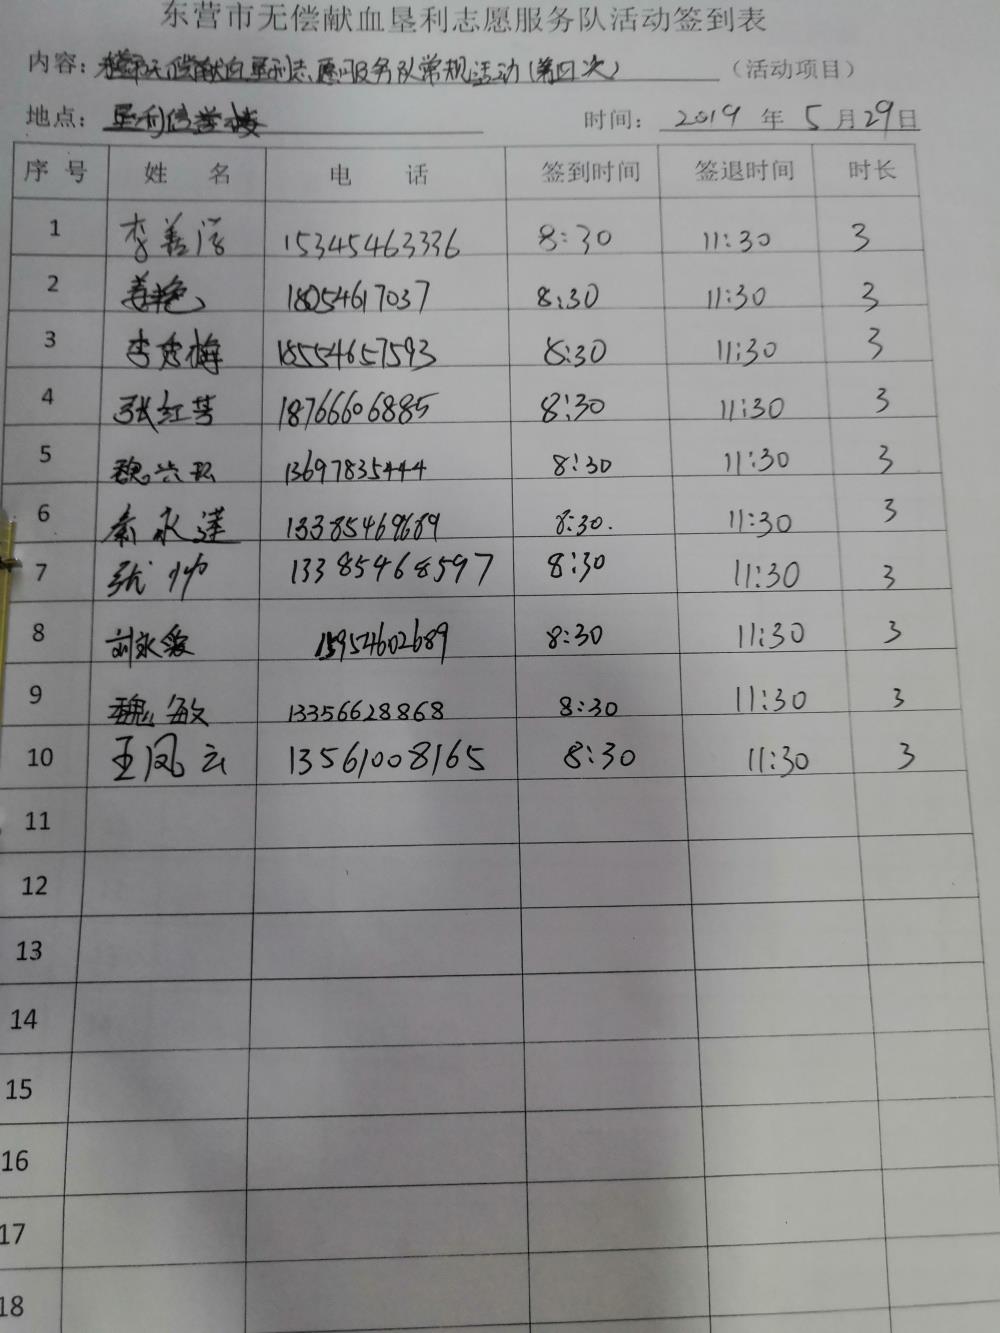 东营市无偿献血垦利志愿服务队活动签到表
内容: 无偿献血垦利志愿服务队常规活动(第四次) (活动项目)
地点: 垦利 时间: 2019 年 5 月 29 日
序 号 姓 名 电 话 签到时间 签退时间 时长
1 李善 15345463336 8:30 11:30 3
2 姜艳 18054617037 8:30 11:30 3
3 李秀梅 18554657593 8:30 11:30 3
4 张红芳 18766606885 8:30 11:30 3
5 魏 13697835444 8:30 11:30 3
6 秦永莲 13385469689 8:30. 11:30 3
7 张帅 13385468597 8:30 11:30 3
8 刘永爱 15954602689 8:30 11:30 3
9 魏敏 13356628868 8:30 11:30 3
10 王凤云 13561008165 8:30 11:30 3
11
12
13
14
15
16
17
18